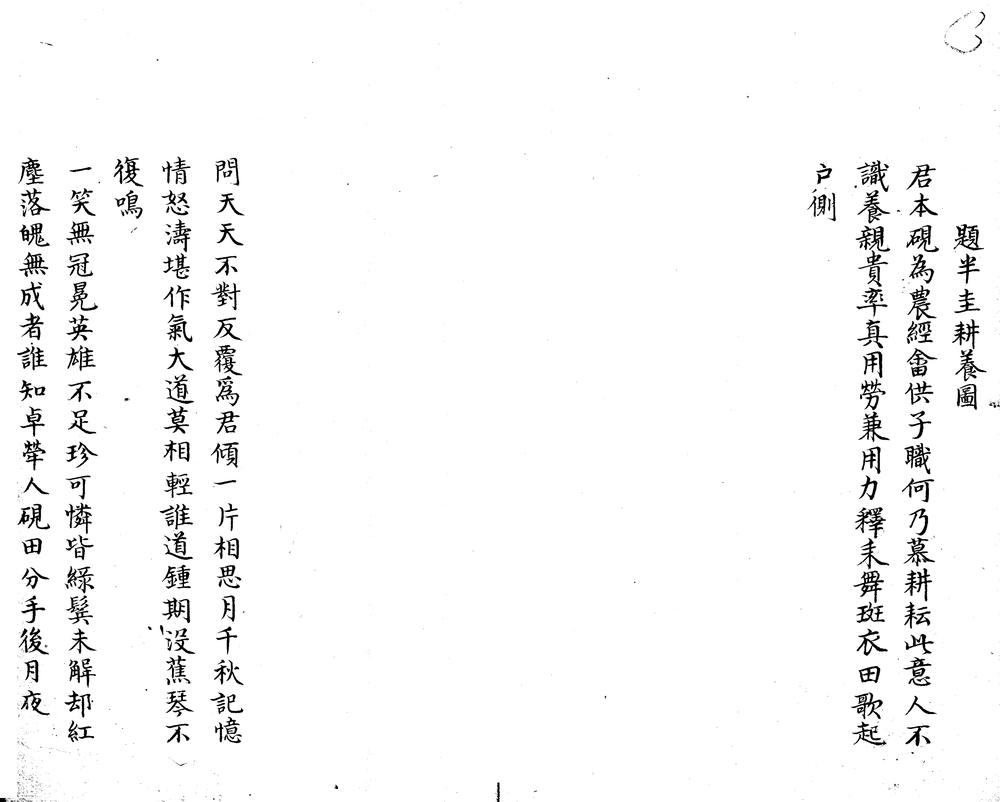 題半圭耕養圖
君本硯為農經畬供子職何乃慕耕耘此意人不
識養親貴率真用勞兼用力釋耒舞斑衣田歌起
戶側
問天天不對反覆爲君傾一片相思月千秋記憶
情怒濤堪作氣大道莫相輕誰道鍾期没蕉琴不
復鳴
一笑無冠冕英雄不足珍可憐皆綠鬓未解却紅
塵落魄無成者誰知卓犖人硯田分手後月夜